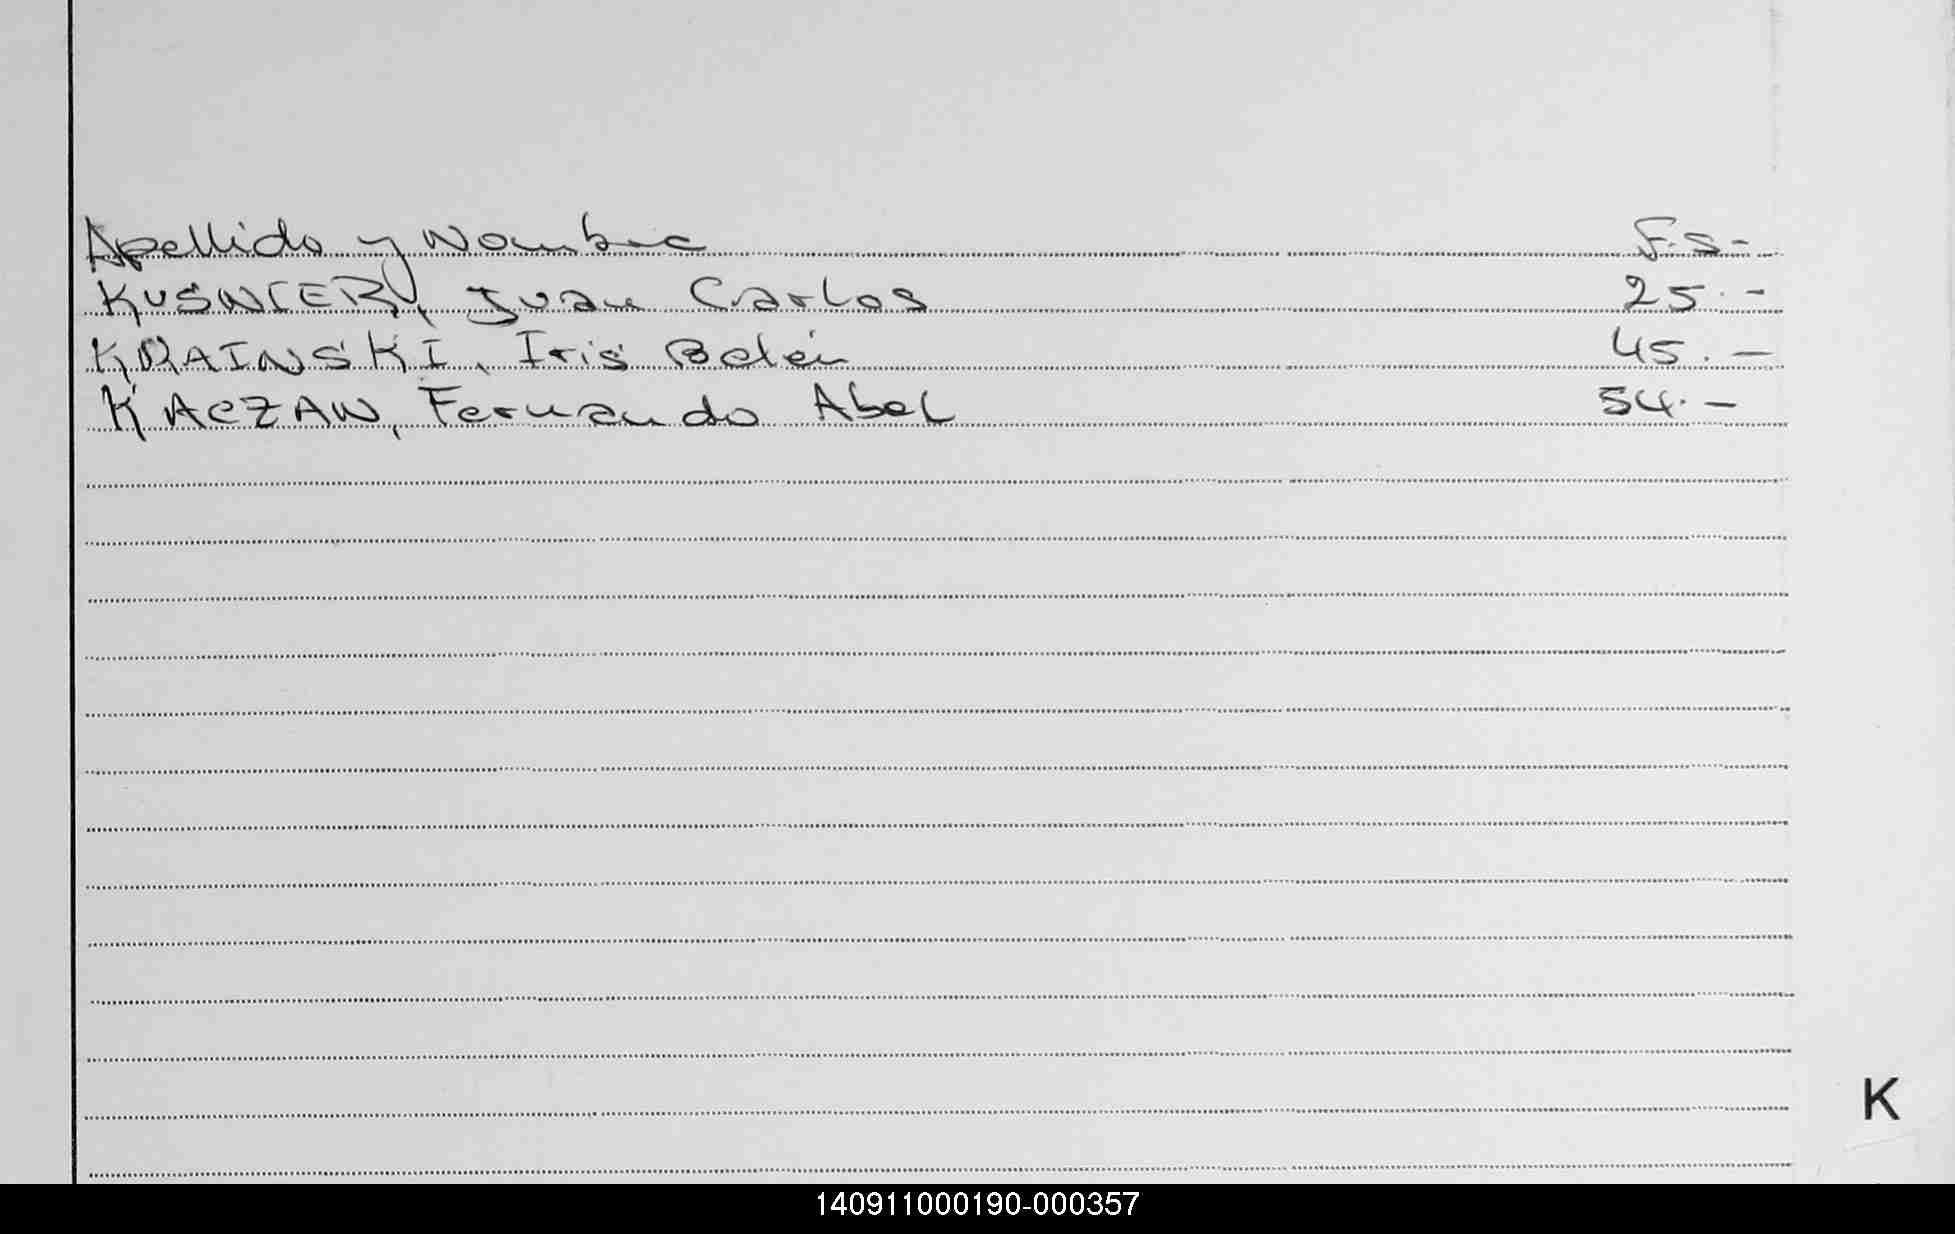 Apellido y Nombre F.S.-
KUSNIER, Juan Carlos 25.-
KRAINSKI, Iris Belén 45.-
KACZAN, Fernando Abel 54.-
K
140911000190-000357